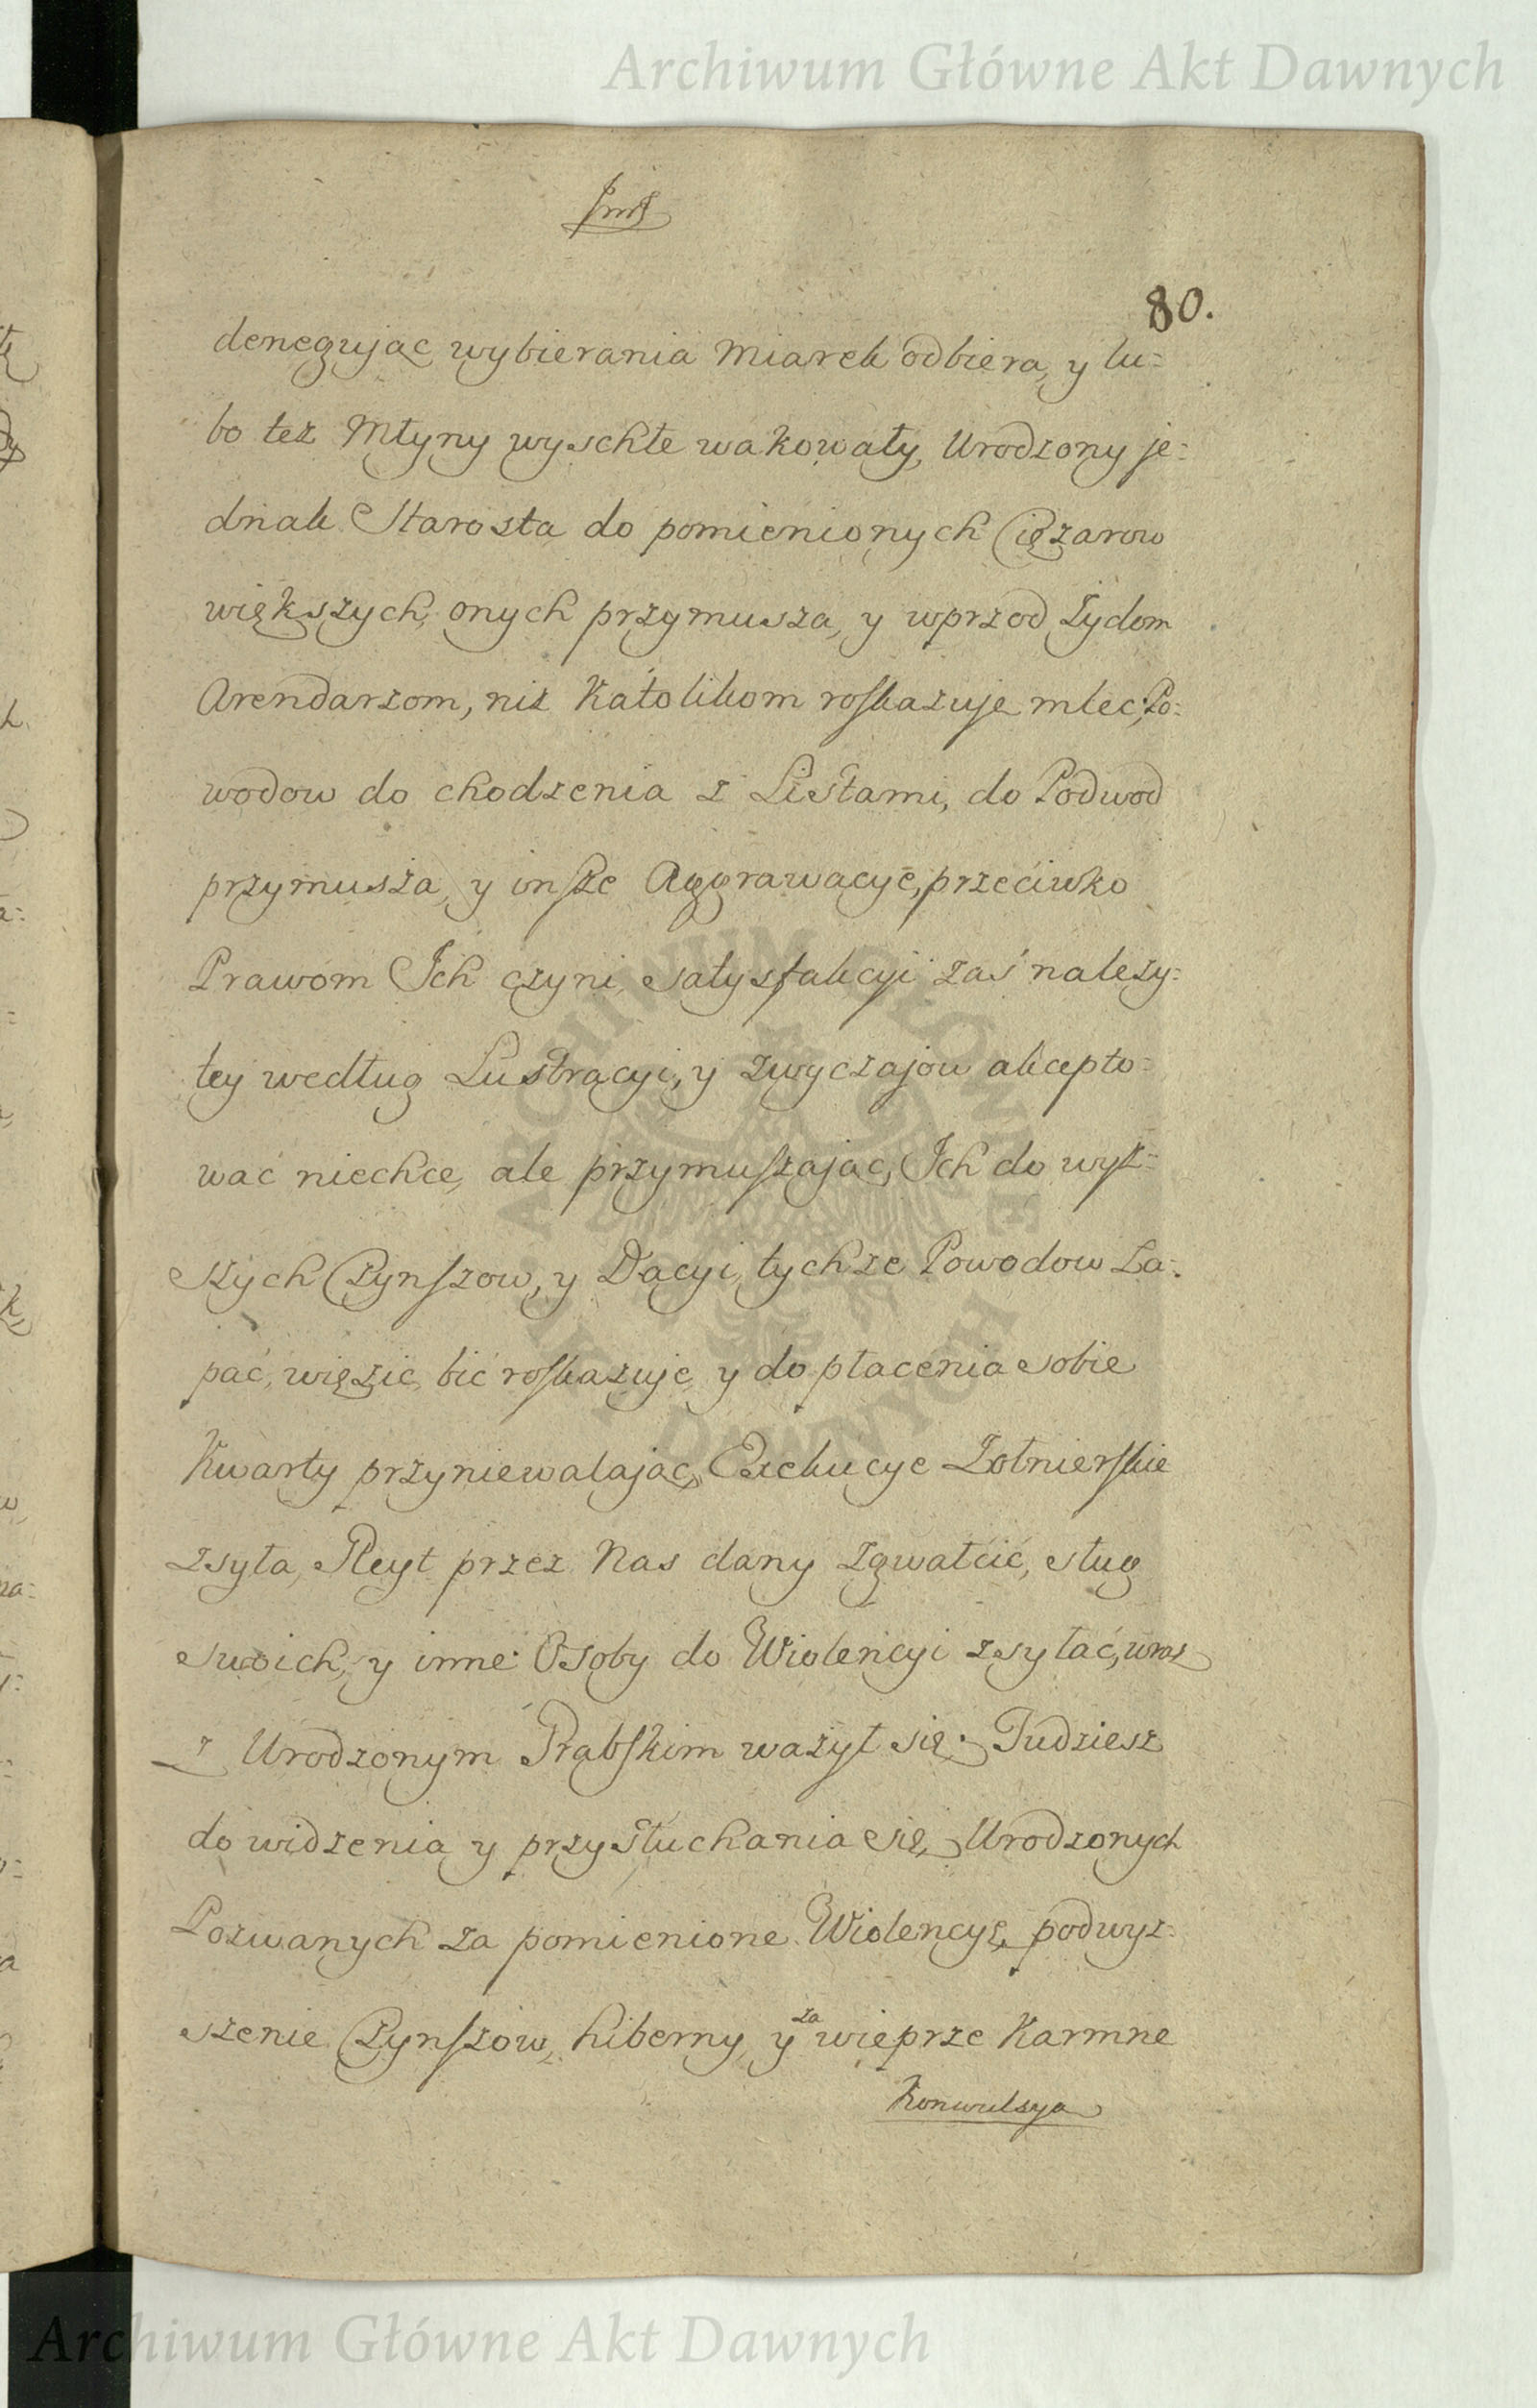 Archiwum Główne Akt Dawnych
80.
denegując wybierania Miarek odbiera, y lu=
bo też Młyny wyschłe wakowały, Urodzony je=
dnak Starosta do pomienionych Ciężarow
większych, onych przymusza, y wprzod Żydom
Arendarzom, niż Katolikom roskazuje mleć, Po=
wodow do chodzenia z Listami, do Podwod
przymusza, y insze Aggrawacye, przeciwko
Prawom Ich czyni, satysfakcyi zaś należy=
tey według Lustracyi, y zwyczajow akcepto=
wać niechce, ale przymuszając, Ich do wyż=
szych Czynszow, y Dacyi, tychże Powodow ła=
pać, więzić, bić roskazuje, y do płacenia sobie
Kwarty przyniewalając, Exekucye Żołnierskie
zsyła, Gleyt przez Nas dany zgwałcić, sług
swoich, y inne Osoby do Wiolencyi zsyłać, wraz
z Urodzonym Grabskim ważył się. Tudziesz
do widzenia y przysłuchania się, Urodzonych
Pozwanych za pomienione Wiolencye, podwyż=
szenie Czynszow, hiberny, y za wieprze Karmne
Konwulsya
ARCHIWUM GŁÓWNE AKT DAWNYCH
Archiwum Główne Akt Dawnych